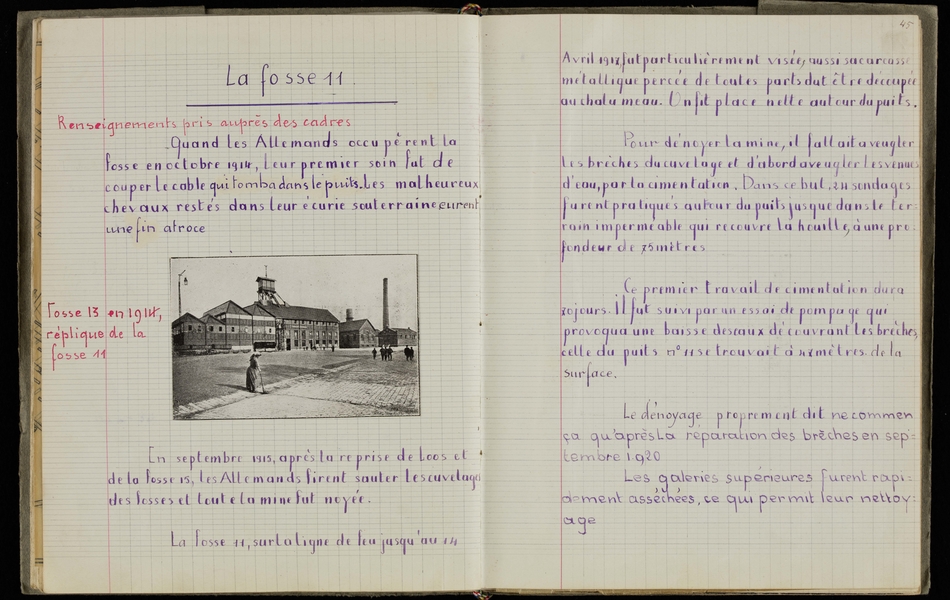 La fosse 11.
Renseignements pris auprès des cadres
Quand les Allemands occupèrent la
fosse en octobre 1914, leur premier soin fut de
couper le cable qui tomba dans le puits. Les malheureux
chevaux restés dans leur écurie souterraine eurent
une fin atroce
Fosse 13 en 1914,
réplique de la
fosse 11
En septembre 1915, après la reprise de Loos et
de la fosse 15, les Allemands firent sauter les cuvelages
des fosses et toute la mine fut noyée.
La fosse 11, sur la ligne de feu jusqu'au 14
45
Avril 1917, fut particulièrement visée, aussi sa carcasse
métallique percée de toutes parts dut être découpée
au chalumeau. On fit place nette autour du puits.
Pour dénoyer la mine, il fallait aveugler
les brèches du cuvelage et d'abord aveugler les venues
d'eau, par la cimentation. Dans ce but, 24 sondages
furent pratiqués autour du puits jusque dans le ter-
rain imperméable qui recouvre la houille, à une pro-
fondeur de 75 mètres
Ce premier travail de cimentation dura
jours. Il fut suivi par un essai de pompage qui
provoqua une baisse des eaux découvrant les brèches,
celle du puits n° 11 se trouvait à mètres de la
surface.
Le dénoyage proprement dit ne commen
ça qu'après la réparation des brèches en sep-
tembre 1920
Les galeries supérieures furent rapi-
dement asséchées, ce qui permit leur nettoy-
age